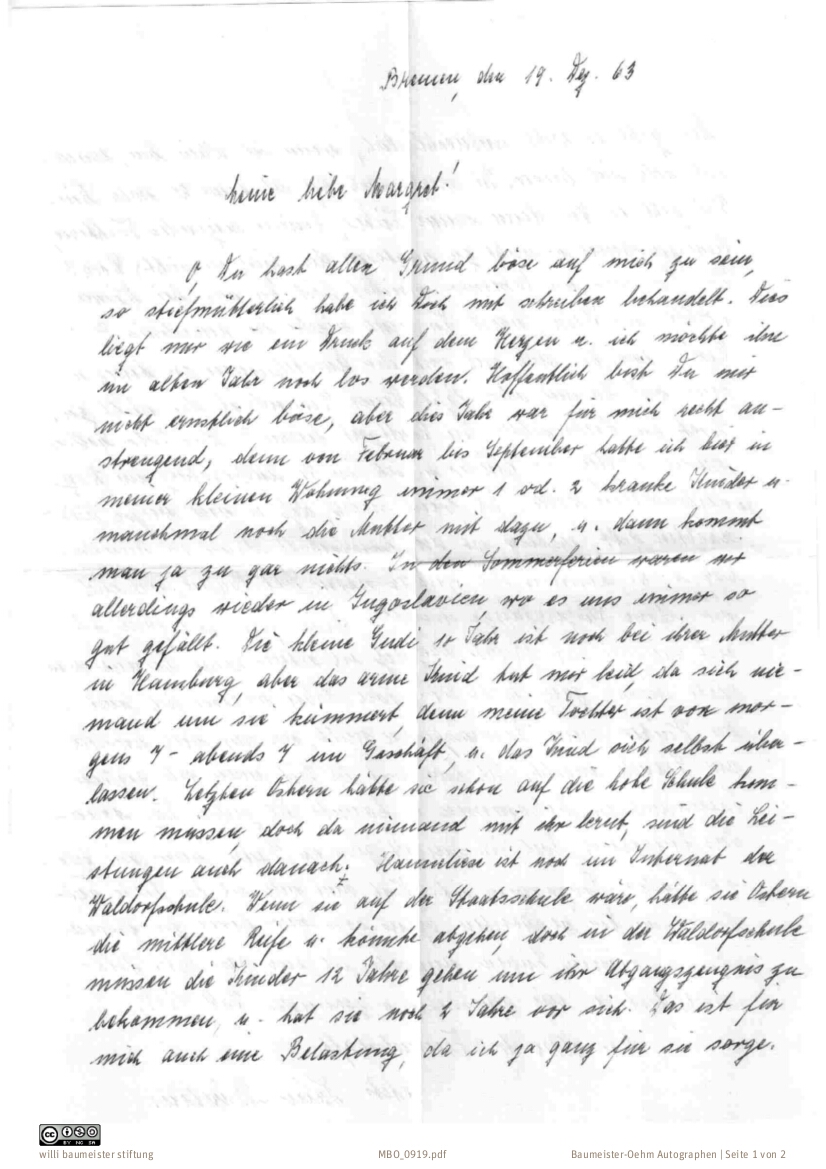 Bremen, den 19. Dez. 63
Meine liebe Margret!
O, Du hast allen Grund böse auf mich zu sein,
so stiefmütterlich habe ich Dich mit schreiben behandelt. Dies
liegt mir wie ein Druck auf dem Herzen u. ich möchte ihn
im alten Jahr noch los werden. Hoffentlich bist Du mir
nicht ernstlich böse, aber dies Jahr war für mich recht an-
strengend, denn von Februar bis September hatte ich hier in
meiner kleinen Wohnung immer 1 od. 2 kranke Kinder u.
manchmal noch die Mutter mit dazu, u. dann kommt
man ja zu gar nichts. In den Sommerferien waren wir
allerdings wieder in Jugoslavien, wo es uns immer so
gut gefällt. Die kleine Gudi 10 Jahr ist noch bei ihrer Mutter
in Hamburg, aber das arme Kind tut mir leid, da sich nie-
mand um sie kümmert, denn meine Tochter ist von mor-
gens 7 - abends 7 im Geschäft, u. das Kind sich selbst über-
lassen. Letzten Ostern hätte sie schon auf die hohe Schule kom-
men müssen, doch da niemand mit ihr lernt, sind die Lei-
stungen auch danach. Hannliese ist noch im Internat der
Waldorfschule. Wenn sie auf der Staatsschule wäre, hätte sie Ostern
die mittlere Reife u. könnte abgehen, doch in der Waldorfschule
müssen die Kinder 12 Jahre gehen um ihr Abgangszeugnis zu
bekommen, u. hat sie noch 2 Jahre vor sich. Das ist für
mich auch eine Belastung, da ich ja ganz für sie sorge.
CC BY NC SA
willi baumeister stiftung MBO_0919.pdf Baumeister-Oehm Autographen | Seite 1 von 2